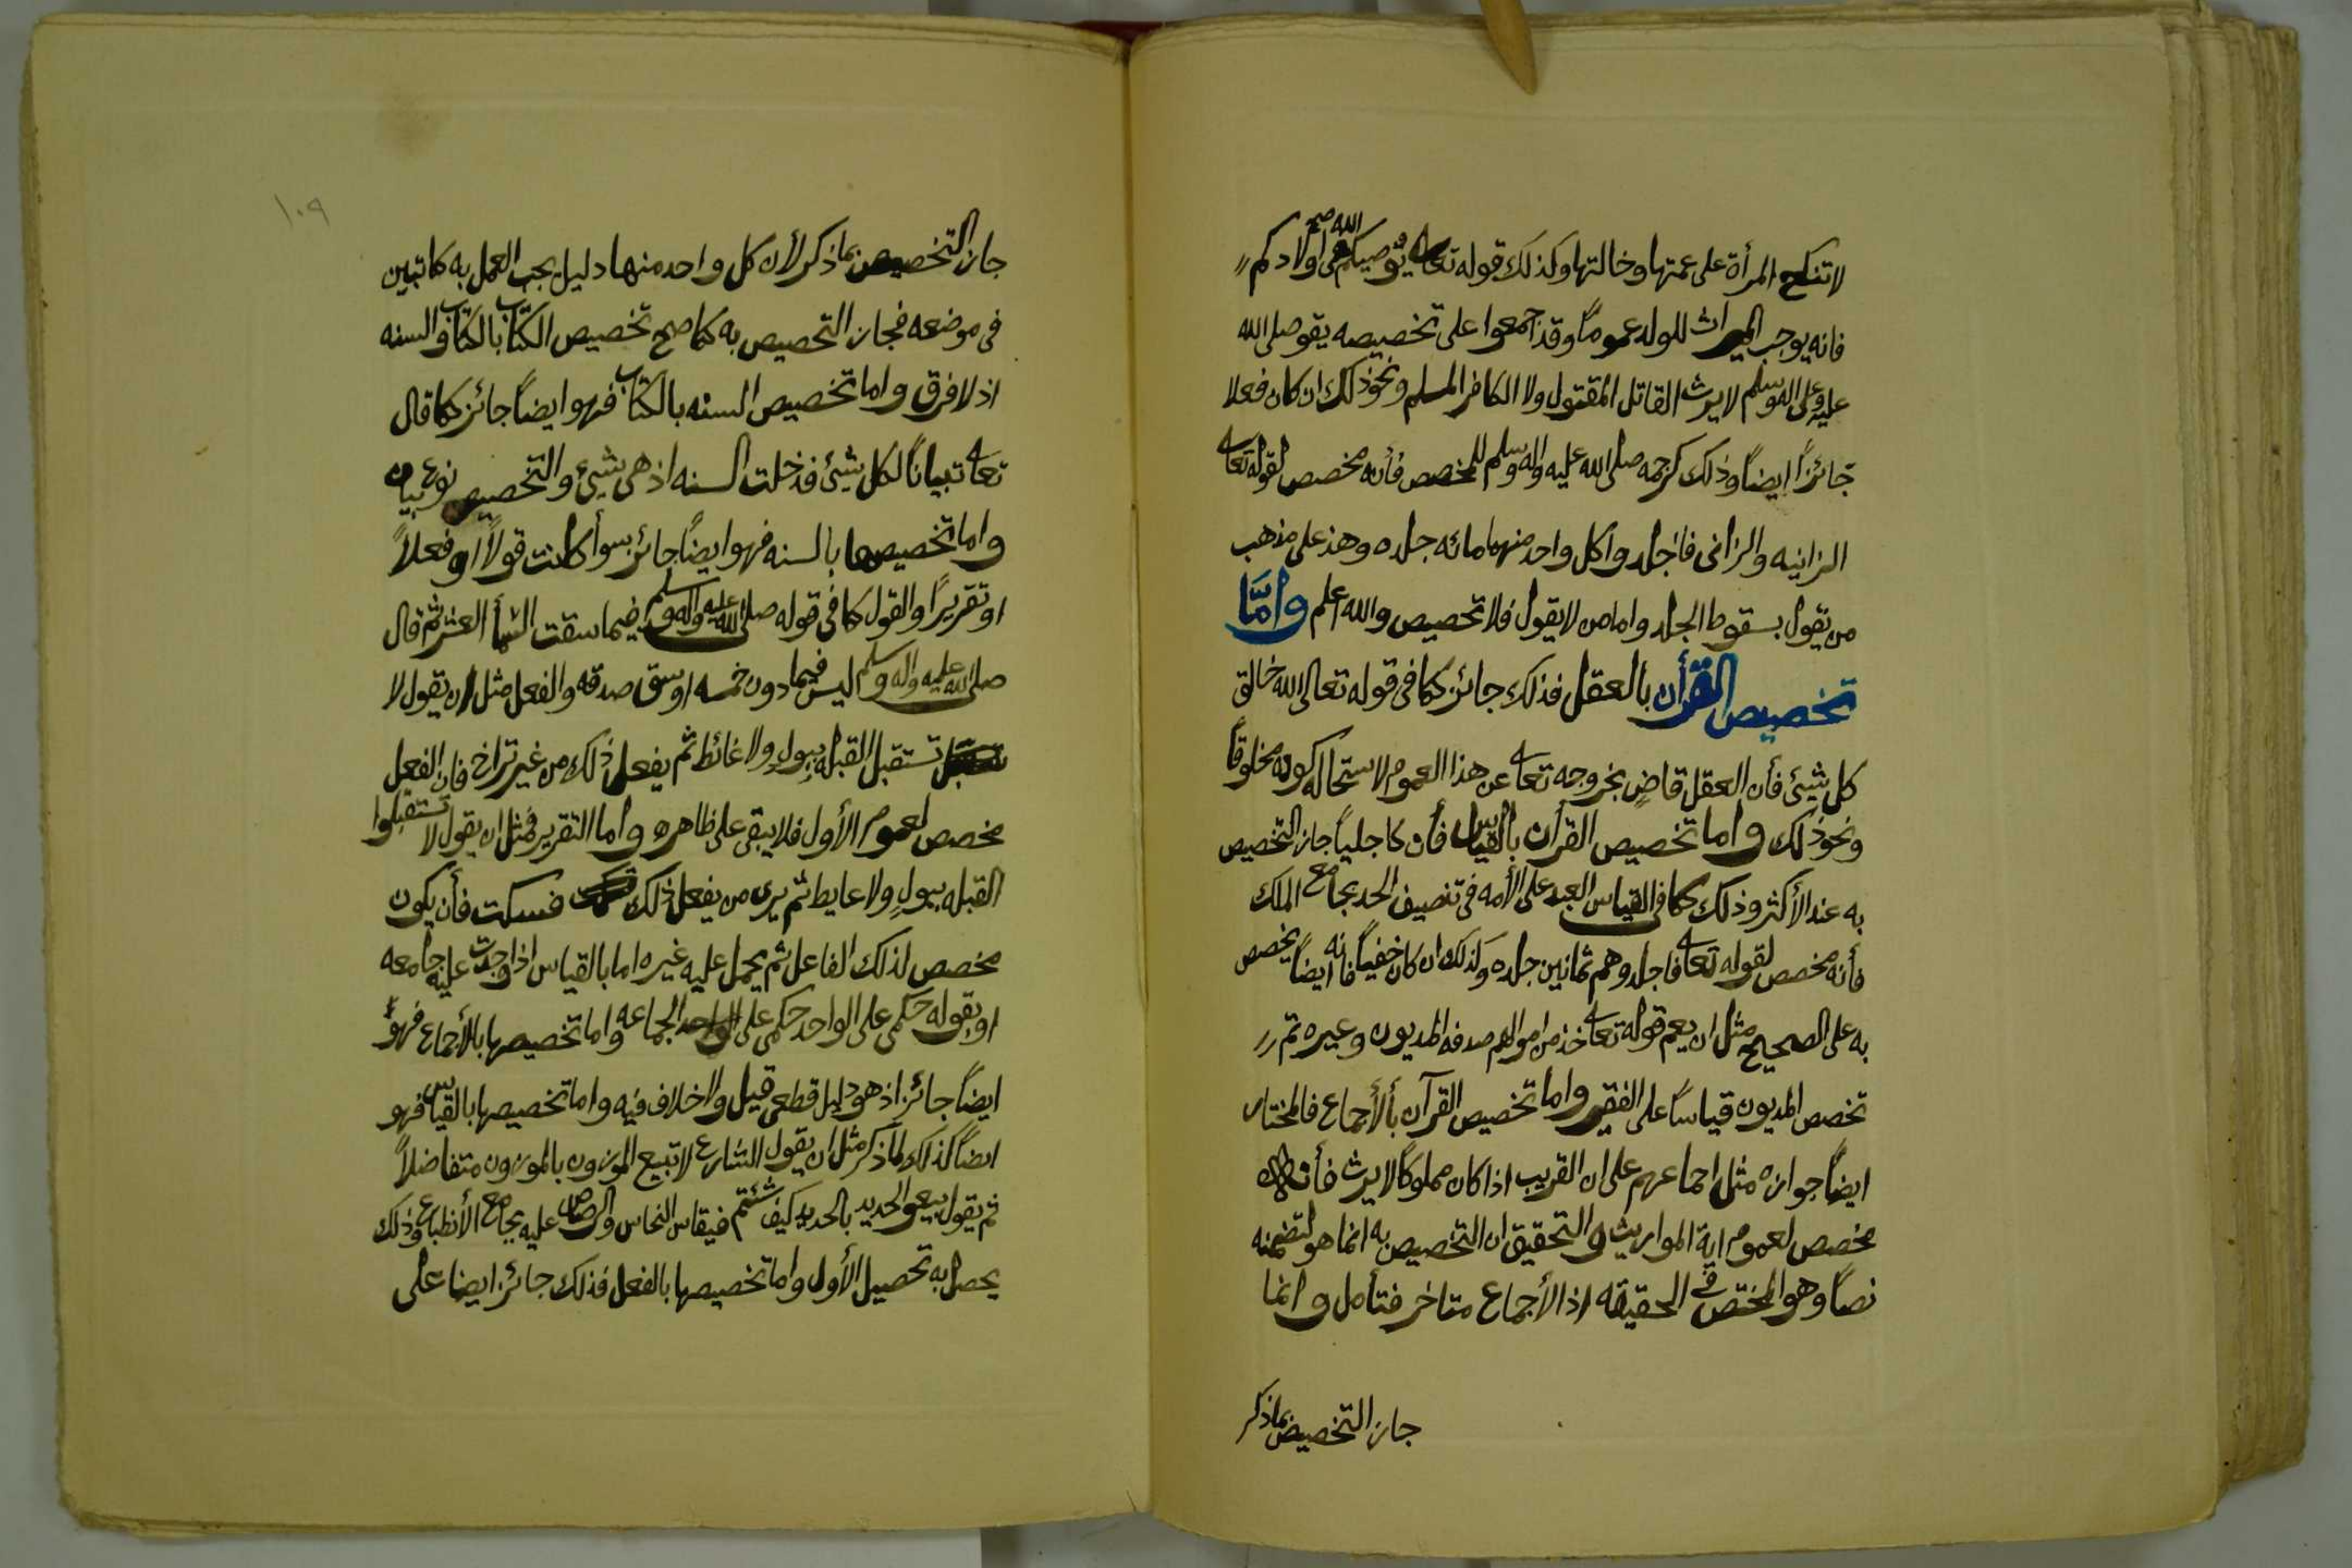 لا تنكح المرأة على عمتها وخالتها وكذلك قوله تعالى يوصيكم الله صح في اولادكم
فانه يوجب الميراث للولد عموماً وقد اجمعوا على تخصيصه بقوله صلى الله
عليه وعلى اله وسلم لا يرث القاتل المقتول ولا الكافر المسلم ونحو ذلك ان كان فعلا
جائزاً ايضاً وذلك كرجمه صلى الله عليه واله وسلم للمحصن فأنه مخصص لقوله تعالى
الزانيه والزانى فاجلدوا كل واحد منهما مائه جلده وهذ على مذهب
من يقول بسقوط الجلد واما من لا يقول فلا تخصيص والله اعلم وامَّا
تخصيص القرأن بالعقل فذلك جائز كما فى قوله تعالى الله خالق
كل شيئ فأن العقل قاضٍ بخروجه تعالى عن هذا العموم لاستحالة كونه مخلوقاً
ونحو ذلك واما تخصيص القرآن بالقياس فأن كا جلياً جاز التخصيص
به عند الأكثر وذلك كما فى القياس العبد على الأمه فى تنصيف الحد بجامع الملك
فأنه مخصص لقوله تعالى فاجلدوهم ثمانين جلده وكذلك ان كان خفياً فانه ايضاً يخصص
به على الصحيح مثل ان يعم قوله تعالى خذ من اموالهم صدقه المديون وغيره ثم
تخصص المديون قياساً على الفقير واما تخصيص القرآن بالأجماع فالمختار
ايضاً جوازه مثل اجماعهم على ان القريب اذا كان مملوكاً لا يرث فأنه
مخصص لعموم اية المواريث والتحقيق ان التخصيص به انما هو لتضمنه
نصاً وهو المختص في الحقيقه اذ الأجماع متاخر فتأمل وانما
جاز التخصيص بما ذكر
١٠٩
جاز التخصيص بما ذكر لأن كل واحد منها دليل يجب العمل به كما تبين
فى موضعه فجاز التخصيص به كما صح تخصيص الكتاب بالكتاب والسنه
اذ لا فرق واما تخصيص السنه بالكتاب فهو ايضاً جائز كما قال
تعالى تبياناً لكل شيئ فدخلت السنه اذ هى شيئ والتخصيص نوع بيان
واما تخصيصها بالسنه فهو ايضاً جائز سوأ كانت قولاً او فعلاً
او تقريراً والقول كما فى قوله صلى الله عليه واله وسلم فيما سقت السمأ العشر ثم قال
صلى الله عليه واله وسلم ليس فيما دون خمسه اوسق صدقه والفعل مثل ان يقول لا
تستقبل القبله ببولٍ ولا غائط ثم يفعل ذلك من غير تراخ فان الفعل
مخصص لعموم الأول فلا يبقى على ظاهره واما التقرير فمثل ان يقول لا تستقبلوا
القبله ببولٍ ولا غايط ثم يرى من يفعل ذلك فسكت فأن يكون
مخصص لذلك الفاعل ثم يحمل عليه غيره اما بالقياس اذا وجدت عليه جامعه
او بقوله حكمى على الواحد حكمى على الجماعه واما تخصيصها بالأجماع فهو
ايضاً جائز اذ هو دليل قطعى قيل ولا خلاف فيه واما تخصيصها بالقياس فهو
ايضاً كذلك لما ذكر مثل ان يقول الشارع لا تبيع الموزون بالموزون متفاضلاً
ثم يقول بيعو الحديد بالحديد كيف شئتم فيقاس النحاس والرصاص عليه بجامع الأنطباع وذلك
يحصل به تحصيل الأول واما تخصيصها بالفعل فذلك جائز ايضا على